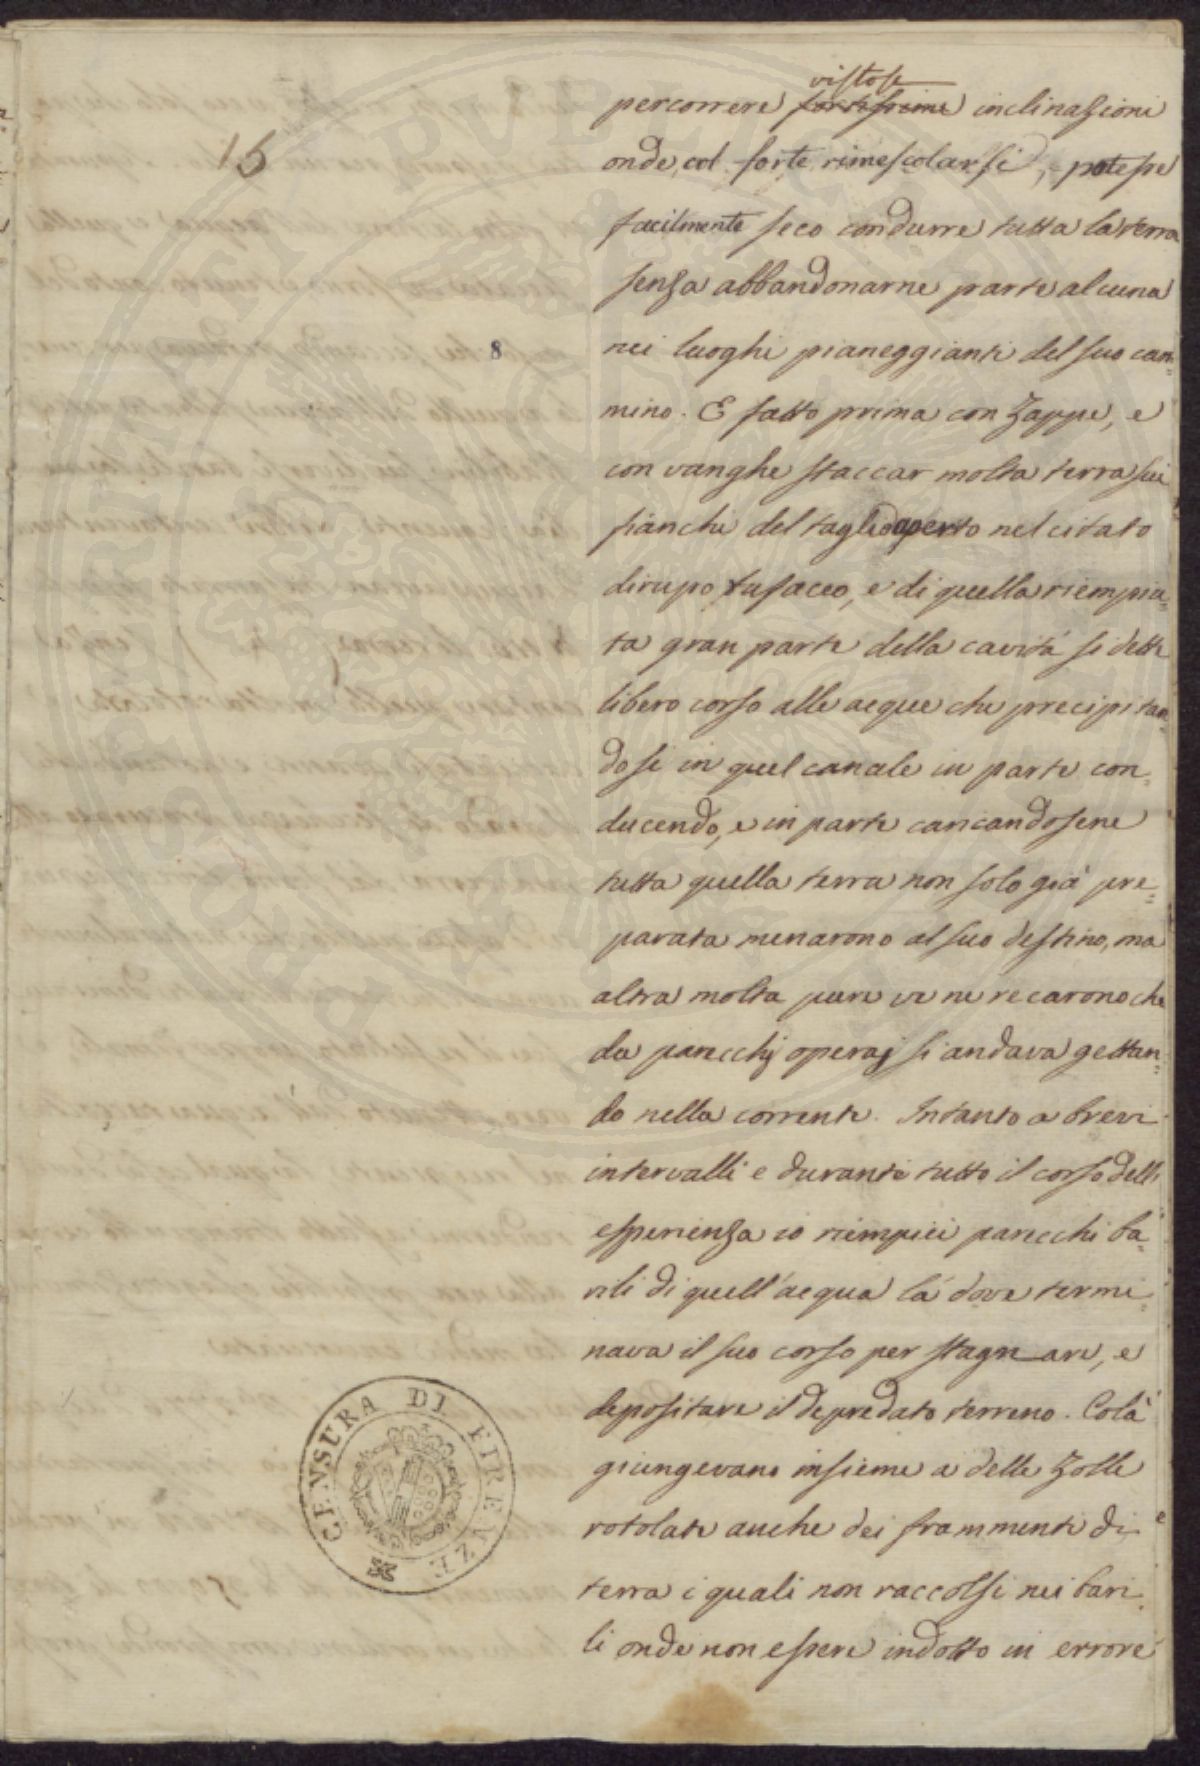 vistose
percorrere fortissime inclinazioni
15
onde, col forte rimescolarsi, potesse
facilmente seco condurre tutta la terra
senza abbandonarne parte alcuna
8
nei luoghi pianeggianti del suo cam=
mino. E fatto prima con zappe, e
con vanghe staccar molta terra sui
fianchi del taglio aperto nel citato
dirupo tufaceo, e di quella riempiu=
ta gran parte della cavità si dette
libero corso alle acque che precipitan=
dosi in quel canale in parte con=
ducendo, e in parte caricandosene
tutta quella terra non solo già pre=
parata menarono al suo destino, ma
altra molta pure ve ne recarono che
da parecchj operaj si andava gettan=
do nella corrente. Intanto a brevi
intervalli e durante tutto il corso dell'
esperienza io riempiei parecchi ba=
rili di quell'acqua là dove termi=
nava il suo corso per stagnare, e
depositare il depredato terreno. Colà
giungevano insieme a delle zolle
rotolate anche dei frammenti di
terra i quali non raccolsi nei bari=
li onde non essere indotto in errore
CENSURA DI FIRENZE